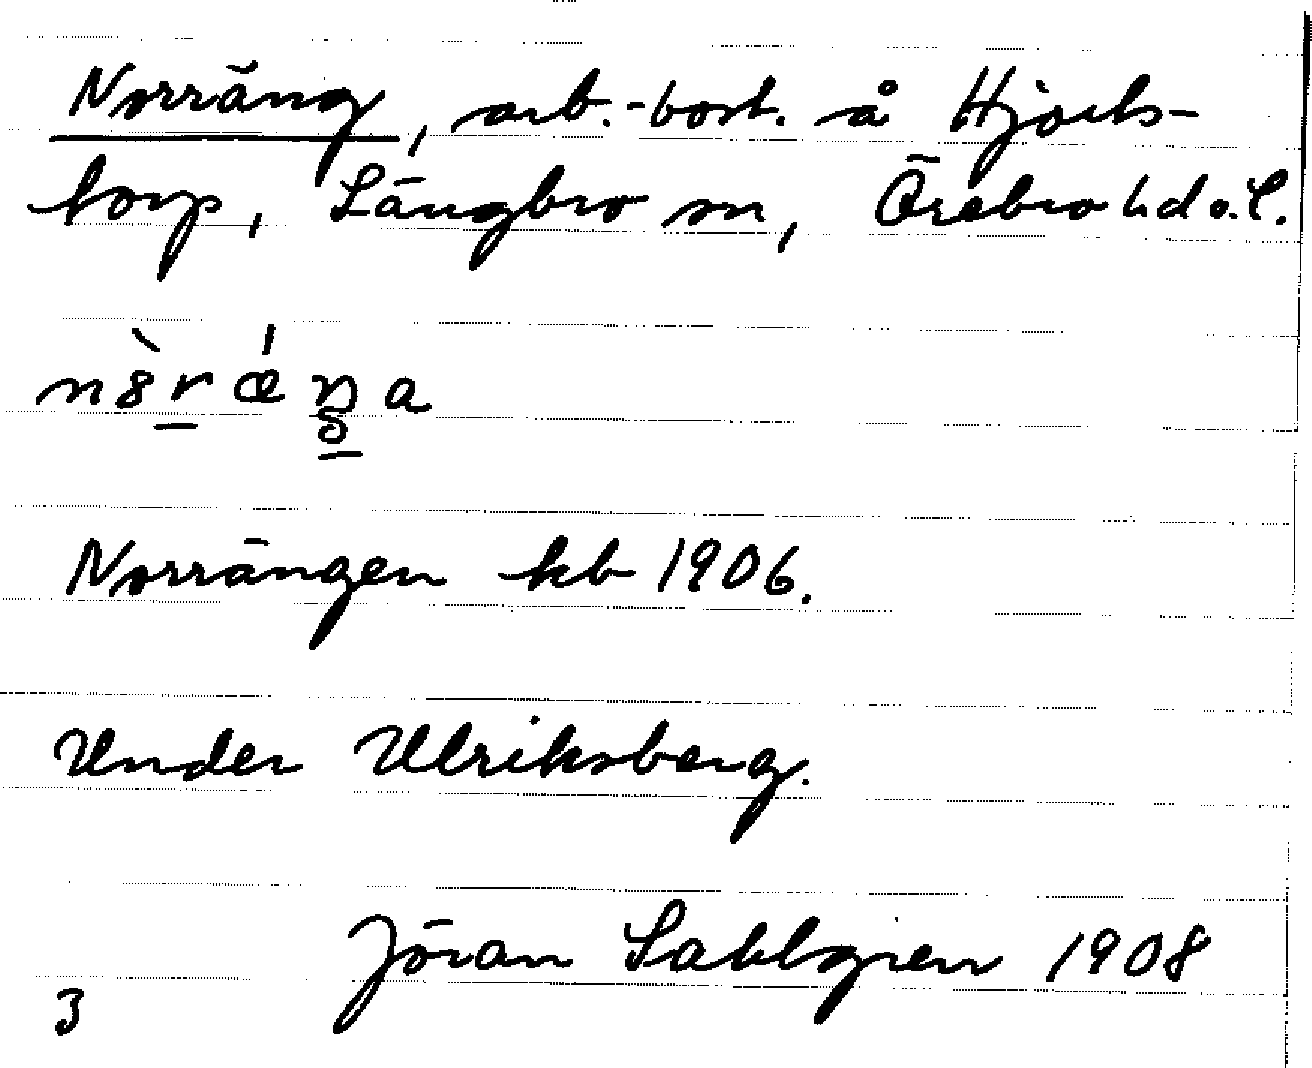 Norräng, arb.-bost. å Hjorts-
torp, Längbro sn, Örebro hd o. l.
Norrängen kb 1906.
Under Ulriksberg.
Jöran Sahlgren 1908
3